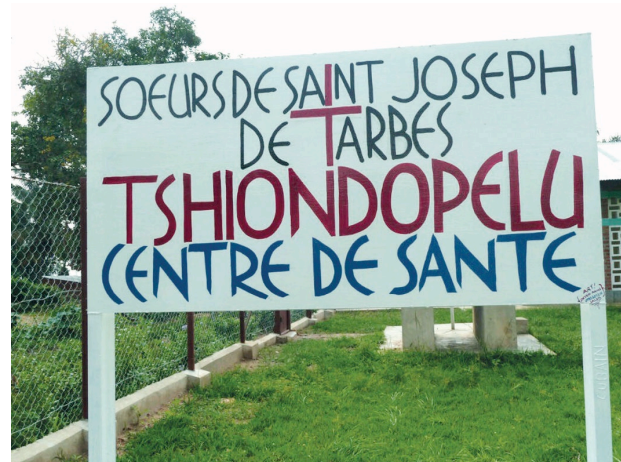 SOEURS DE SAINT JOSEPH
DE TARBES
TSHIONDOPELU
CENTRE DE SANTE